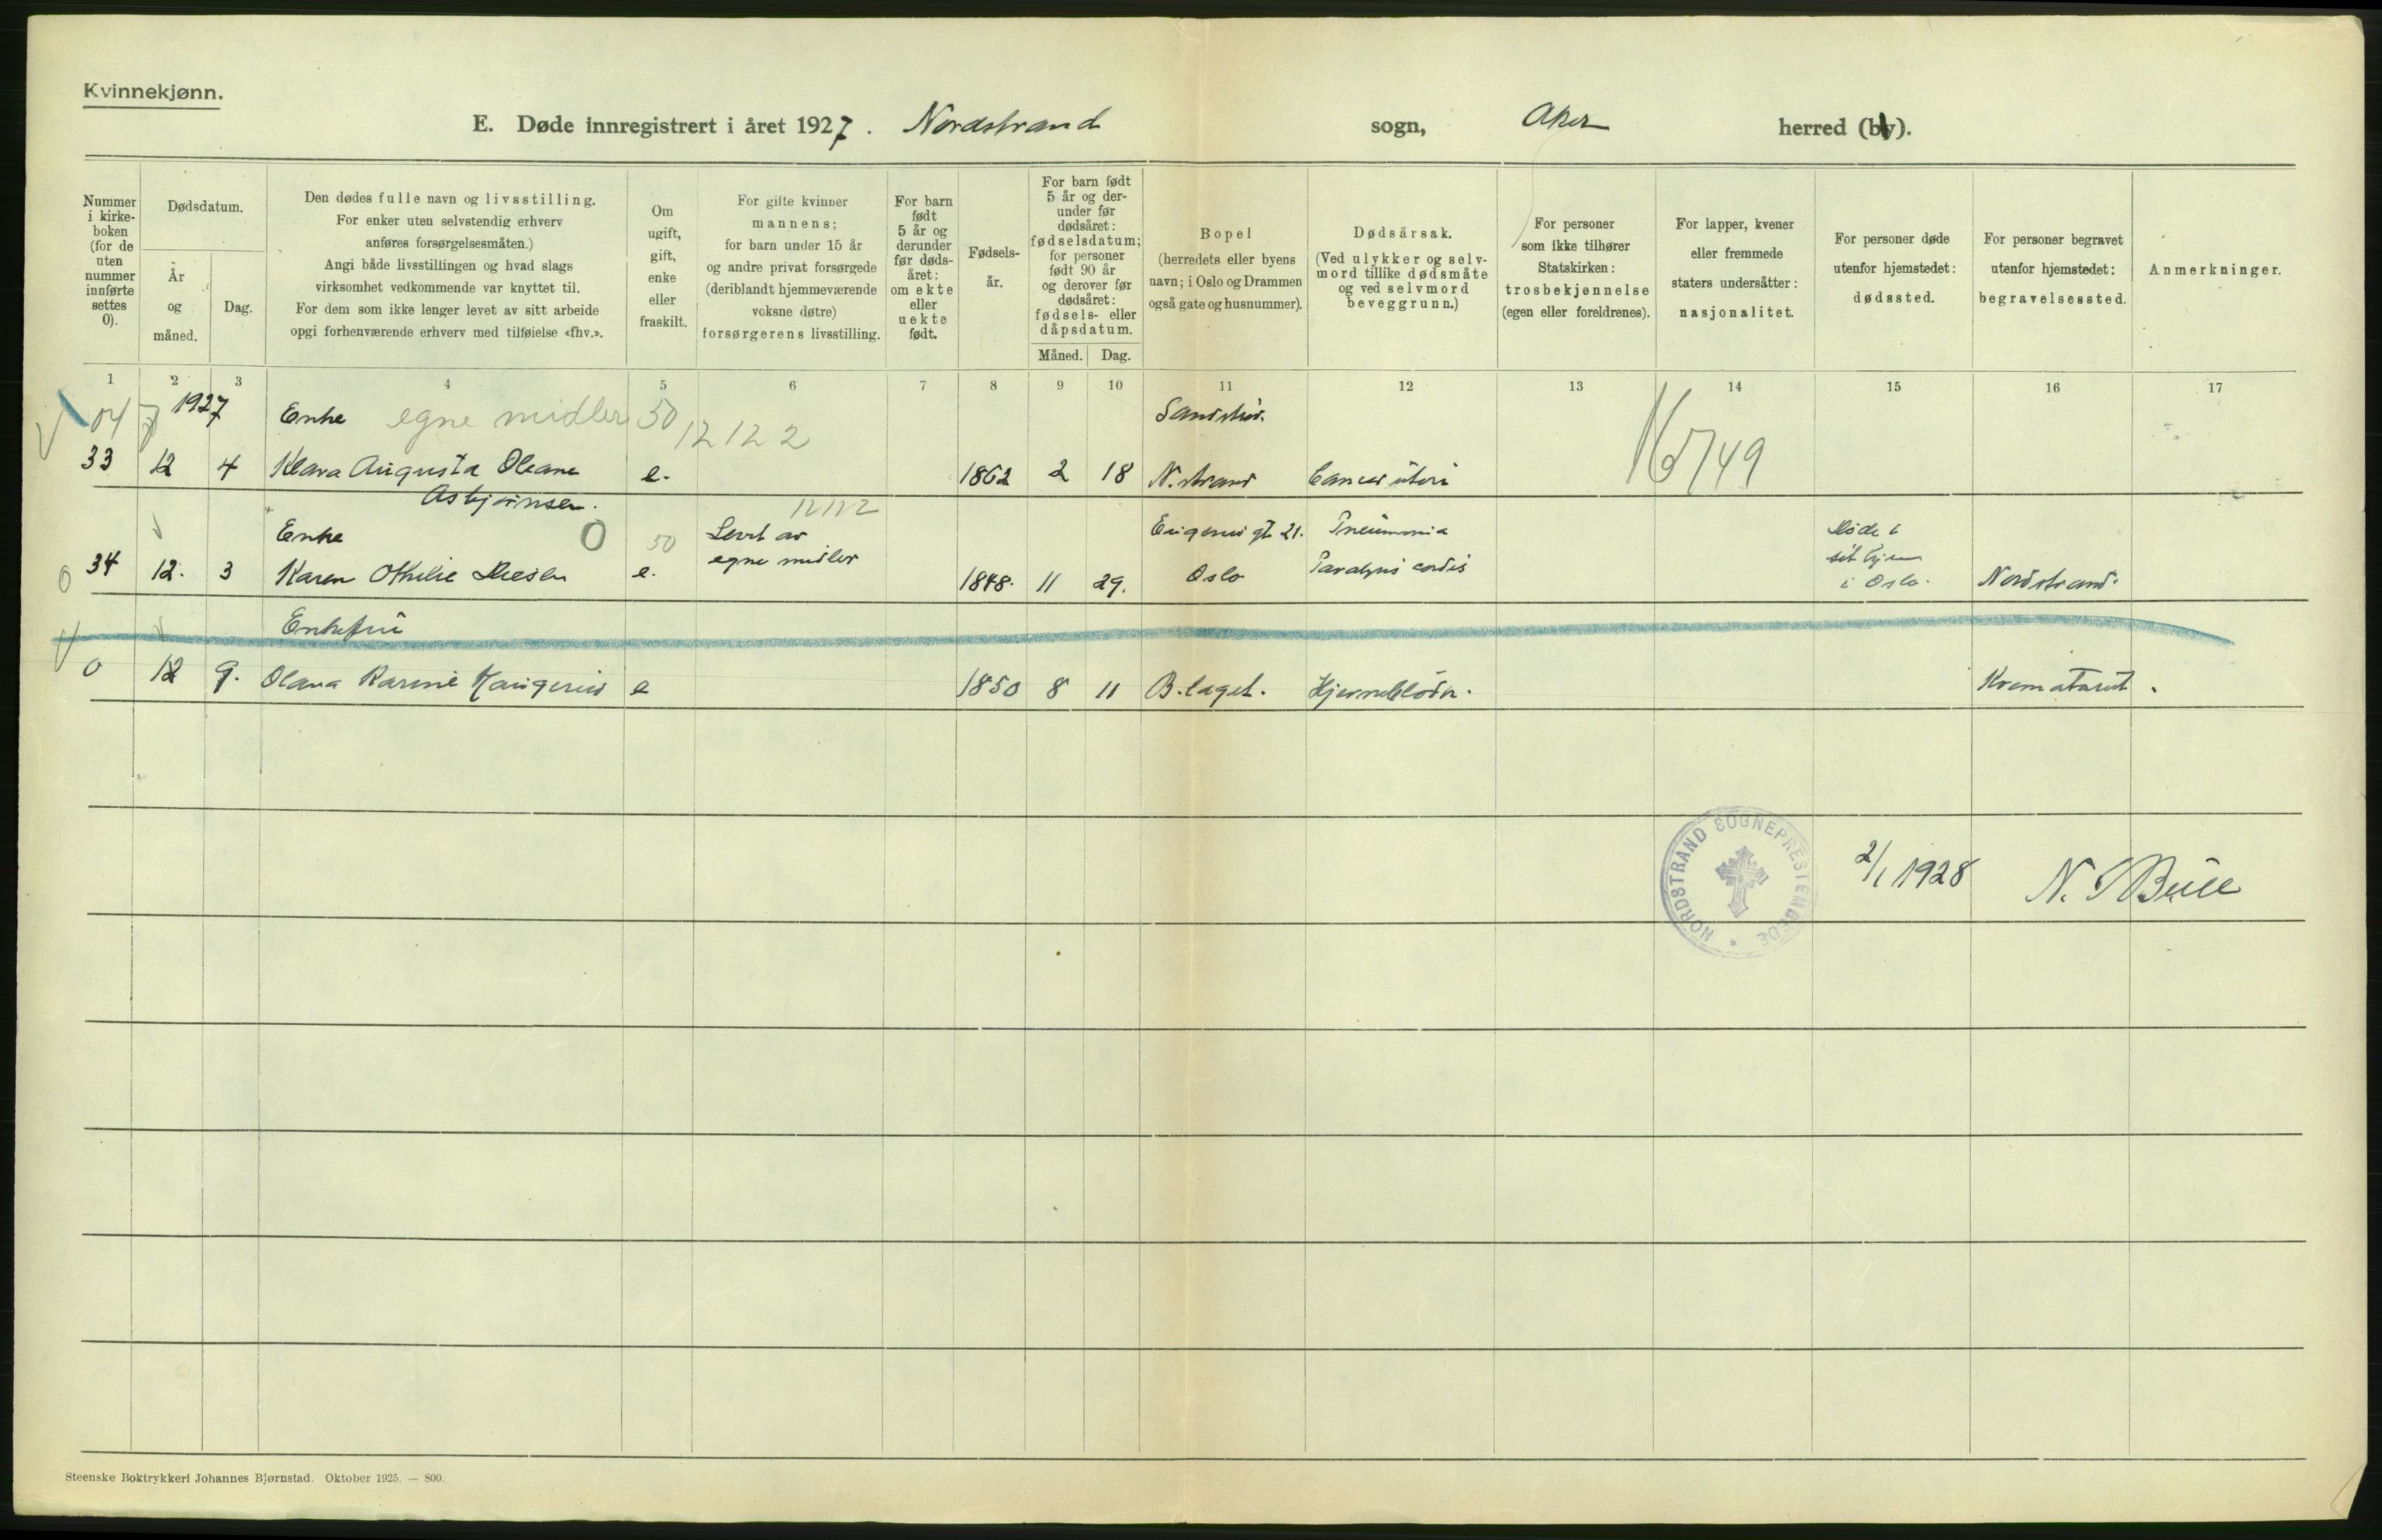 Kvinnekjønn.
E. Døde innregistrert i året 1927. Nordstrand sogn, Aker herred (by).
Nummer i kirke-boken (for de uten nummer innførte settes 0).
Dødsdatum.
År og måned.
Dag.
Den dødes fulle navn og livsstilling.
For enker uten selvstendig erhverv
anføres forsørgelsesmåten.)
Angi både livsstillingen og hvad slags
virksomhet vedkommende var knyttet til.
For dem som ikke lenger levet av sitt arbeide
opgi forhenværende erhverv med tilføielse «fhv.».
Om ugift, gift, enke eller fraskilt.
For gifte kvinner
mannens;
for barn under 15 år
og andre privat forsørgede
(deriblandt hjemmeværende
voksne døtre)
forsørgerens livsstilling.
For barn født 5 år og derunder før døds-året: om ekte eller uekte født.
Fødsels-år.
For barn født 5 år og der-under før dødsåret: fødselsdatum; for personer født 90 år og derover før dødsåret: fødsels- eller dåpsdatum.
Måned. Dag.
Bopel
(herredets eller byens
navn; i Oslo og Drammen
også gate og husnummer).
Dødsårsak.
(Ved ulykker og selv-
mord tillike dødsmåte
og ved selvmord
beveggrunn.)
For personer
som ikke tilhører
Statskirken:
trosbekjennelse
(egen eller foreldrenes).
For lapper, kvener
eller fremmede
staters undersåtter:
nasjonalitet.
For personer døde
utenfor hjemstedet:
dødssted.
For personer begravet
utenfor hjemstedet:
begravelsessted.
Anmerkninger.
1 2 3 4 5 6 7 8 9 10 11 12 13 14 15 16 17
04 1927 Enke egne midler 50 12122
33 12 4 Klara Augusta Oleane e. 1862 2 18 N. strand Cancer uteri 16749
Asbjørnsen.
12112
Enke 0 50 Levet av Eugenies gt 21. Pneumonia Døde i
34 12. 3 Karen Othilie e. egne midler 1848. 11 29. Oslo Paralysis cordis sit hjem i Oslo. Nordstrand.
0
Enkefru
0 12 9. Olava Karine e 1850 8 11 B.laget. Hjerneblødn. Krematoriet.
NORDSTRAND SOGNEPRESTEMBEDE
2/1 1928 N. J Bull
Steenske Boktrykkeri Johannes Bjørnstad. Oktober 1925. — 800.